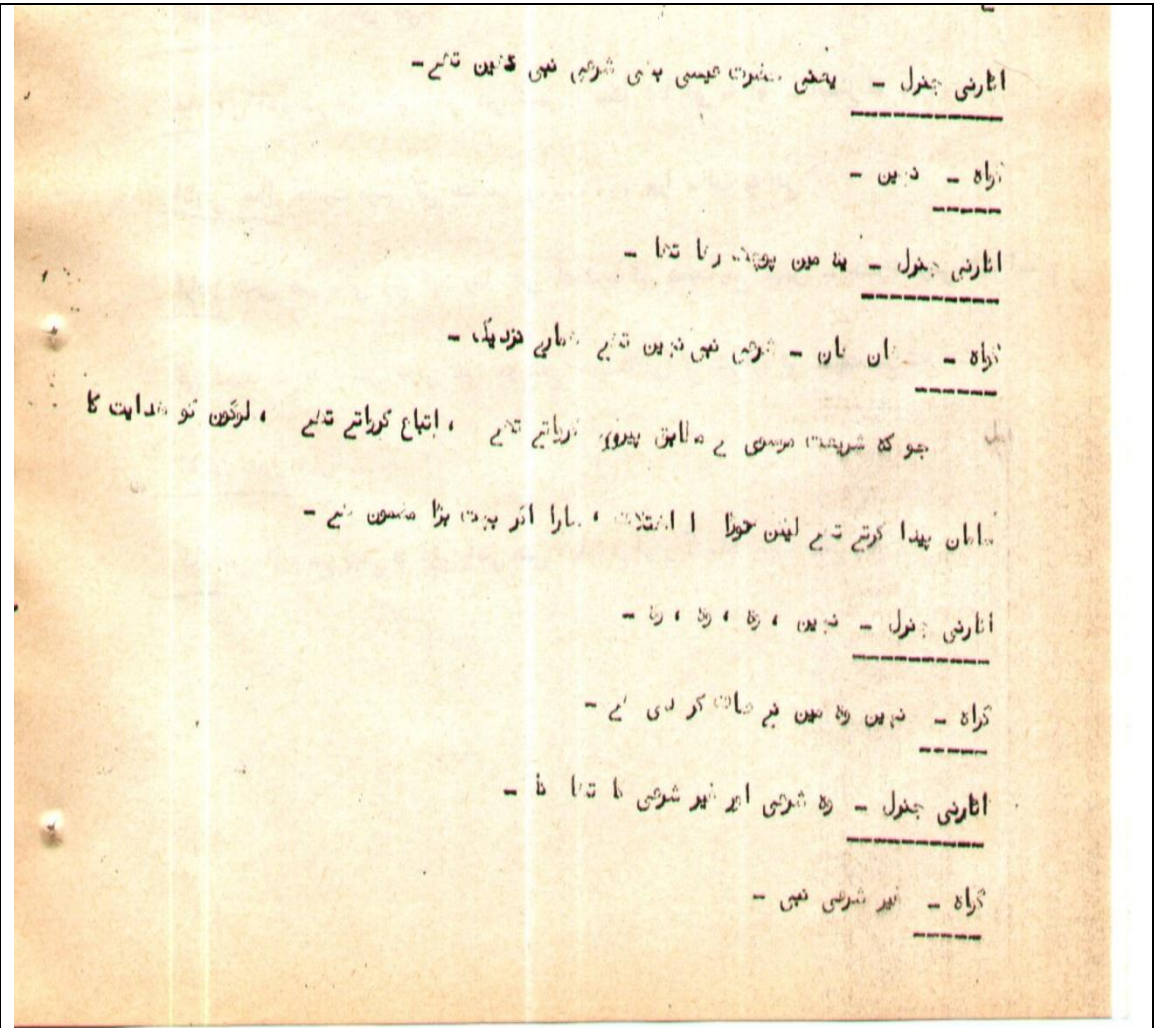 اٹارنی جنرل - یعنی حضرت عیسی بھی شرعی نبی نہین تھے -
گواہ - نہین -
اٹارنی جنرل - یہ مین پوچھ رہا تھا -
گواہ - ہان ہان - شرعی نبی نہین تھے ہمارے نزدیک -
جو کہ شریعت موسوی کے مطابق پیروی کرواتے تھے ، اتباع کرواتے تھے ، لوگون کو ہدایت کا
سامان پیدا کرتے تھے لیکن ہمارا اختلاف ، اور بہت بڑا مضمون ہے -
اٹارنی جنرل - نہین ، وہ ، وہ ، وہ -
گواہ - نہین وہ مین نے صاف کر دی ہے -
اٹارنی جنرل - وہ شرعی اور غیر شرعی کا تھا نا -
گواہ - غیر شرعی نبی -